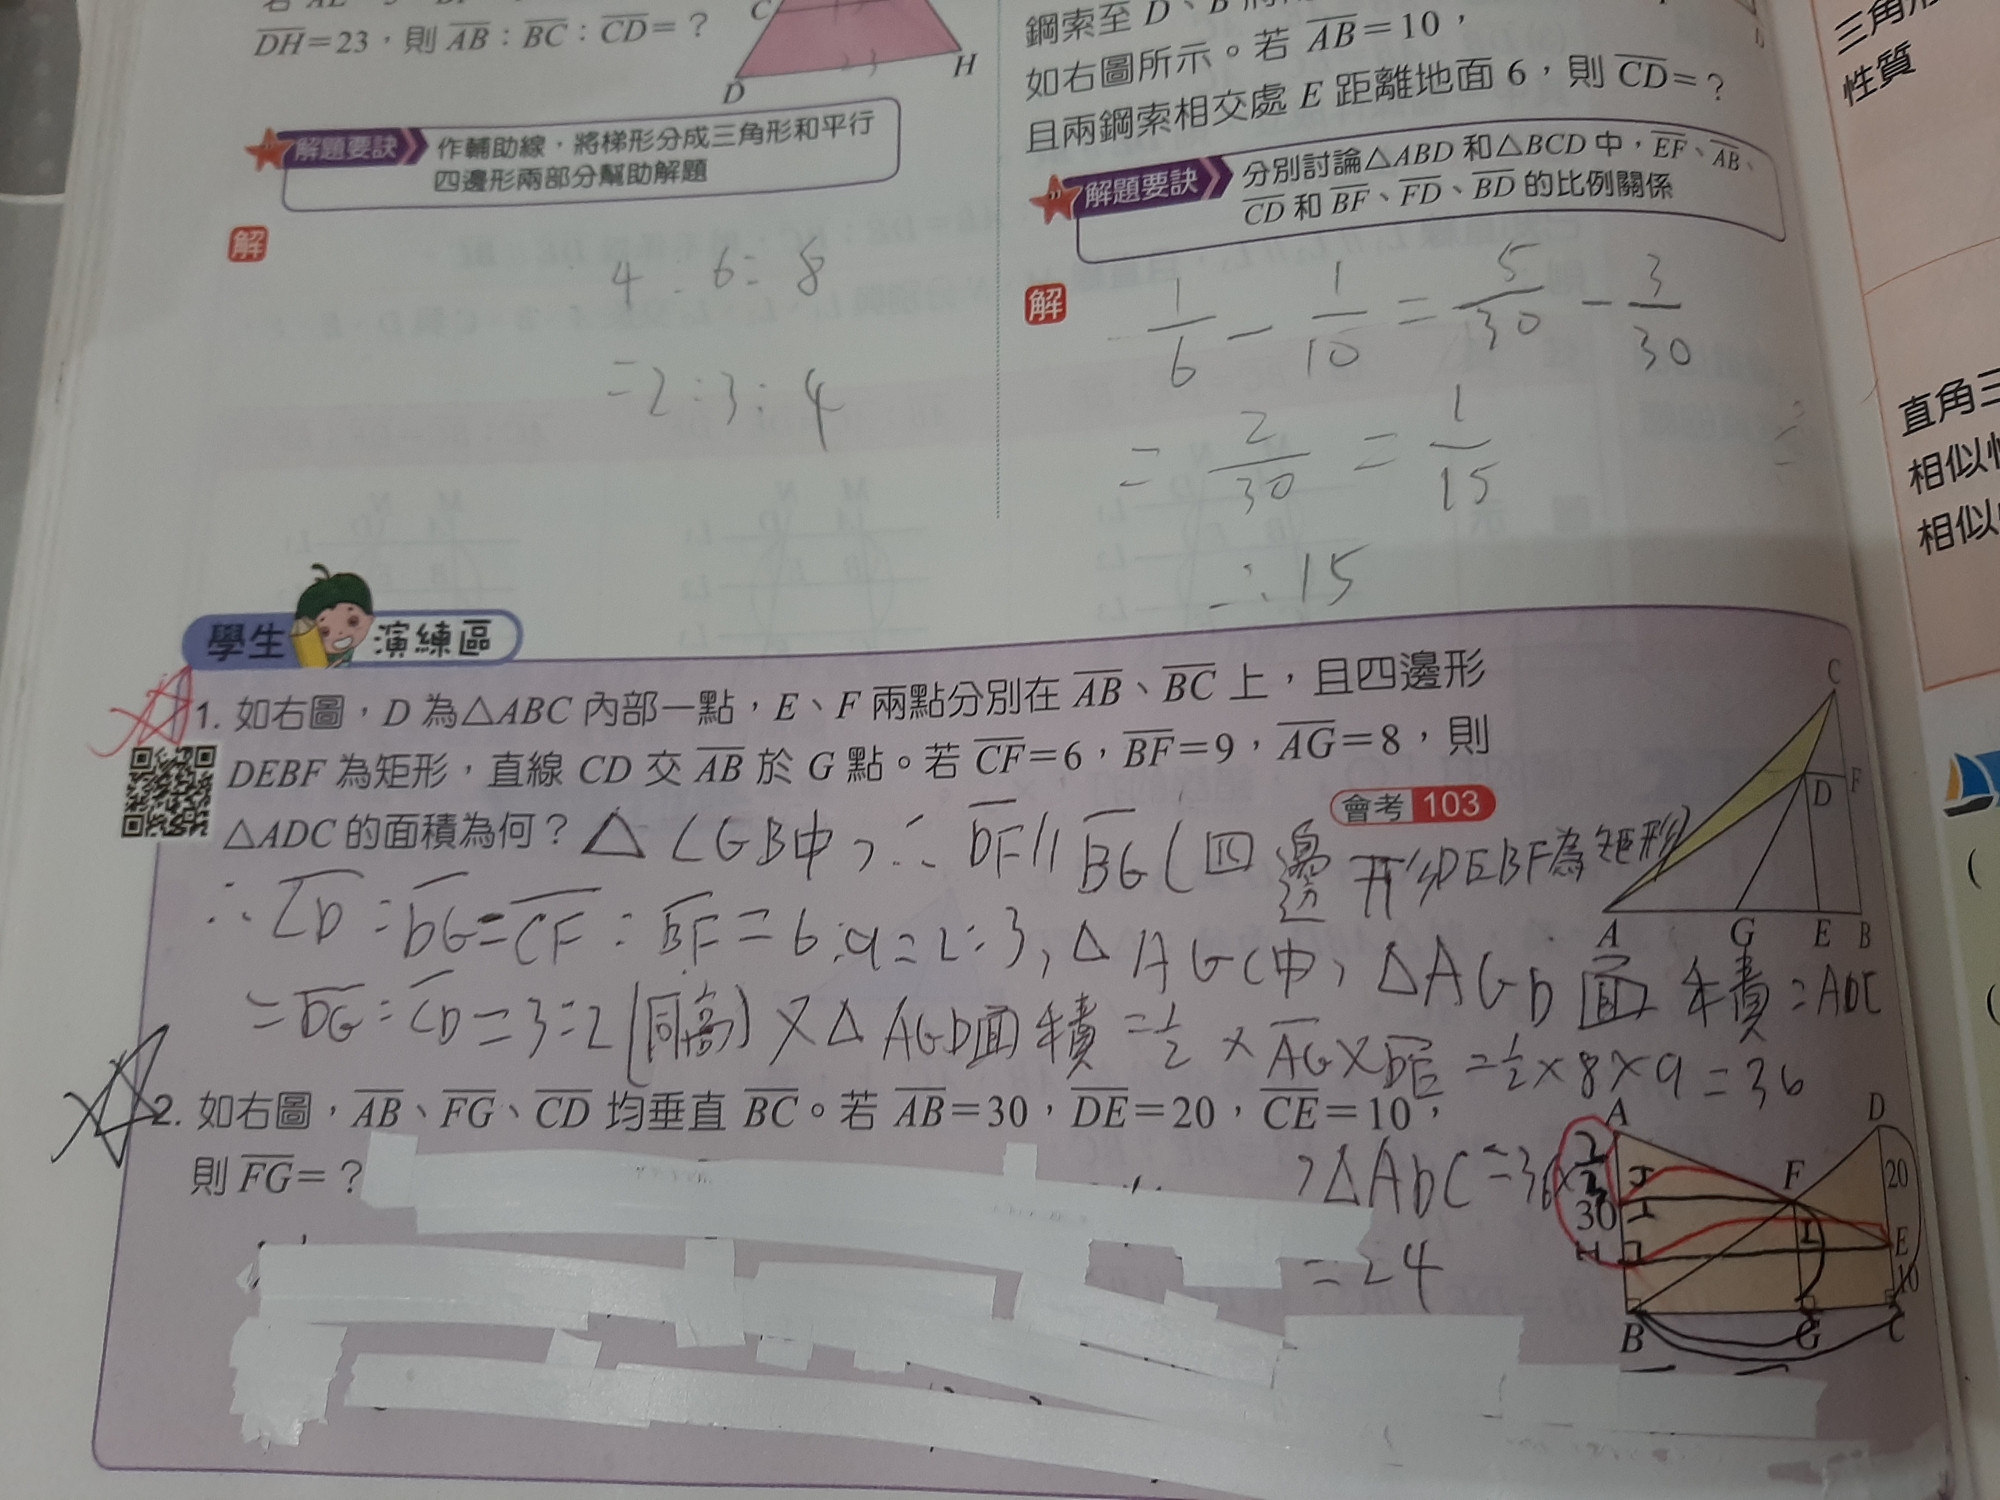 DH=23，則 AB：BC：CD=？
C
D
H
23
解題要訣 作輔助線，將梯形分成三角形和平行
四邊形兩部分幫助解題
解
4：6：8
=2：3：4
鋼索至 D、B
如右圖所示。若 AB=10，
且兩鋼索相交處 E 距離地面 6，則 CD=？
解題要訣 分別討論△ABD 和△BCD 中，EF、AB、
CD 和 BF、FD、BD 的比例關係
解
1/6 - 1/10 = 5/30 - 3/30
= 2/30 = 1/15
∴15
三角形
性質
直角三
相似性
相似
學生演練區
1. 如右圖，D 為△ABC 內部一點，E、F 兩點分別在 AB、BC 上，且四邊形
DEBF 為矩形，直線 CD 交 AB 於 G 點。若 CF=6，BF=9，AG=8，則
△ADC 的面積為何？
會考 103
△CGB中，∵DF//BG(四邊形DEBF為矩形)
∴CD：DG=CF：BF=6：9=2：3，△AGC中，△AGD面積：ADC
=DG：CD=3：2(同高)又△AGD面積=1/2×AG×DE=1/2×8×9=36
，△ADC=36×2/3
=24
C
D F
A G E B
2. 如右圖，AB、FG、CD 均垂直 BC。若 AB=30，DE=20，CE=10，
則 FG=？
A D
F 20
30 I E
H 10
B G C